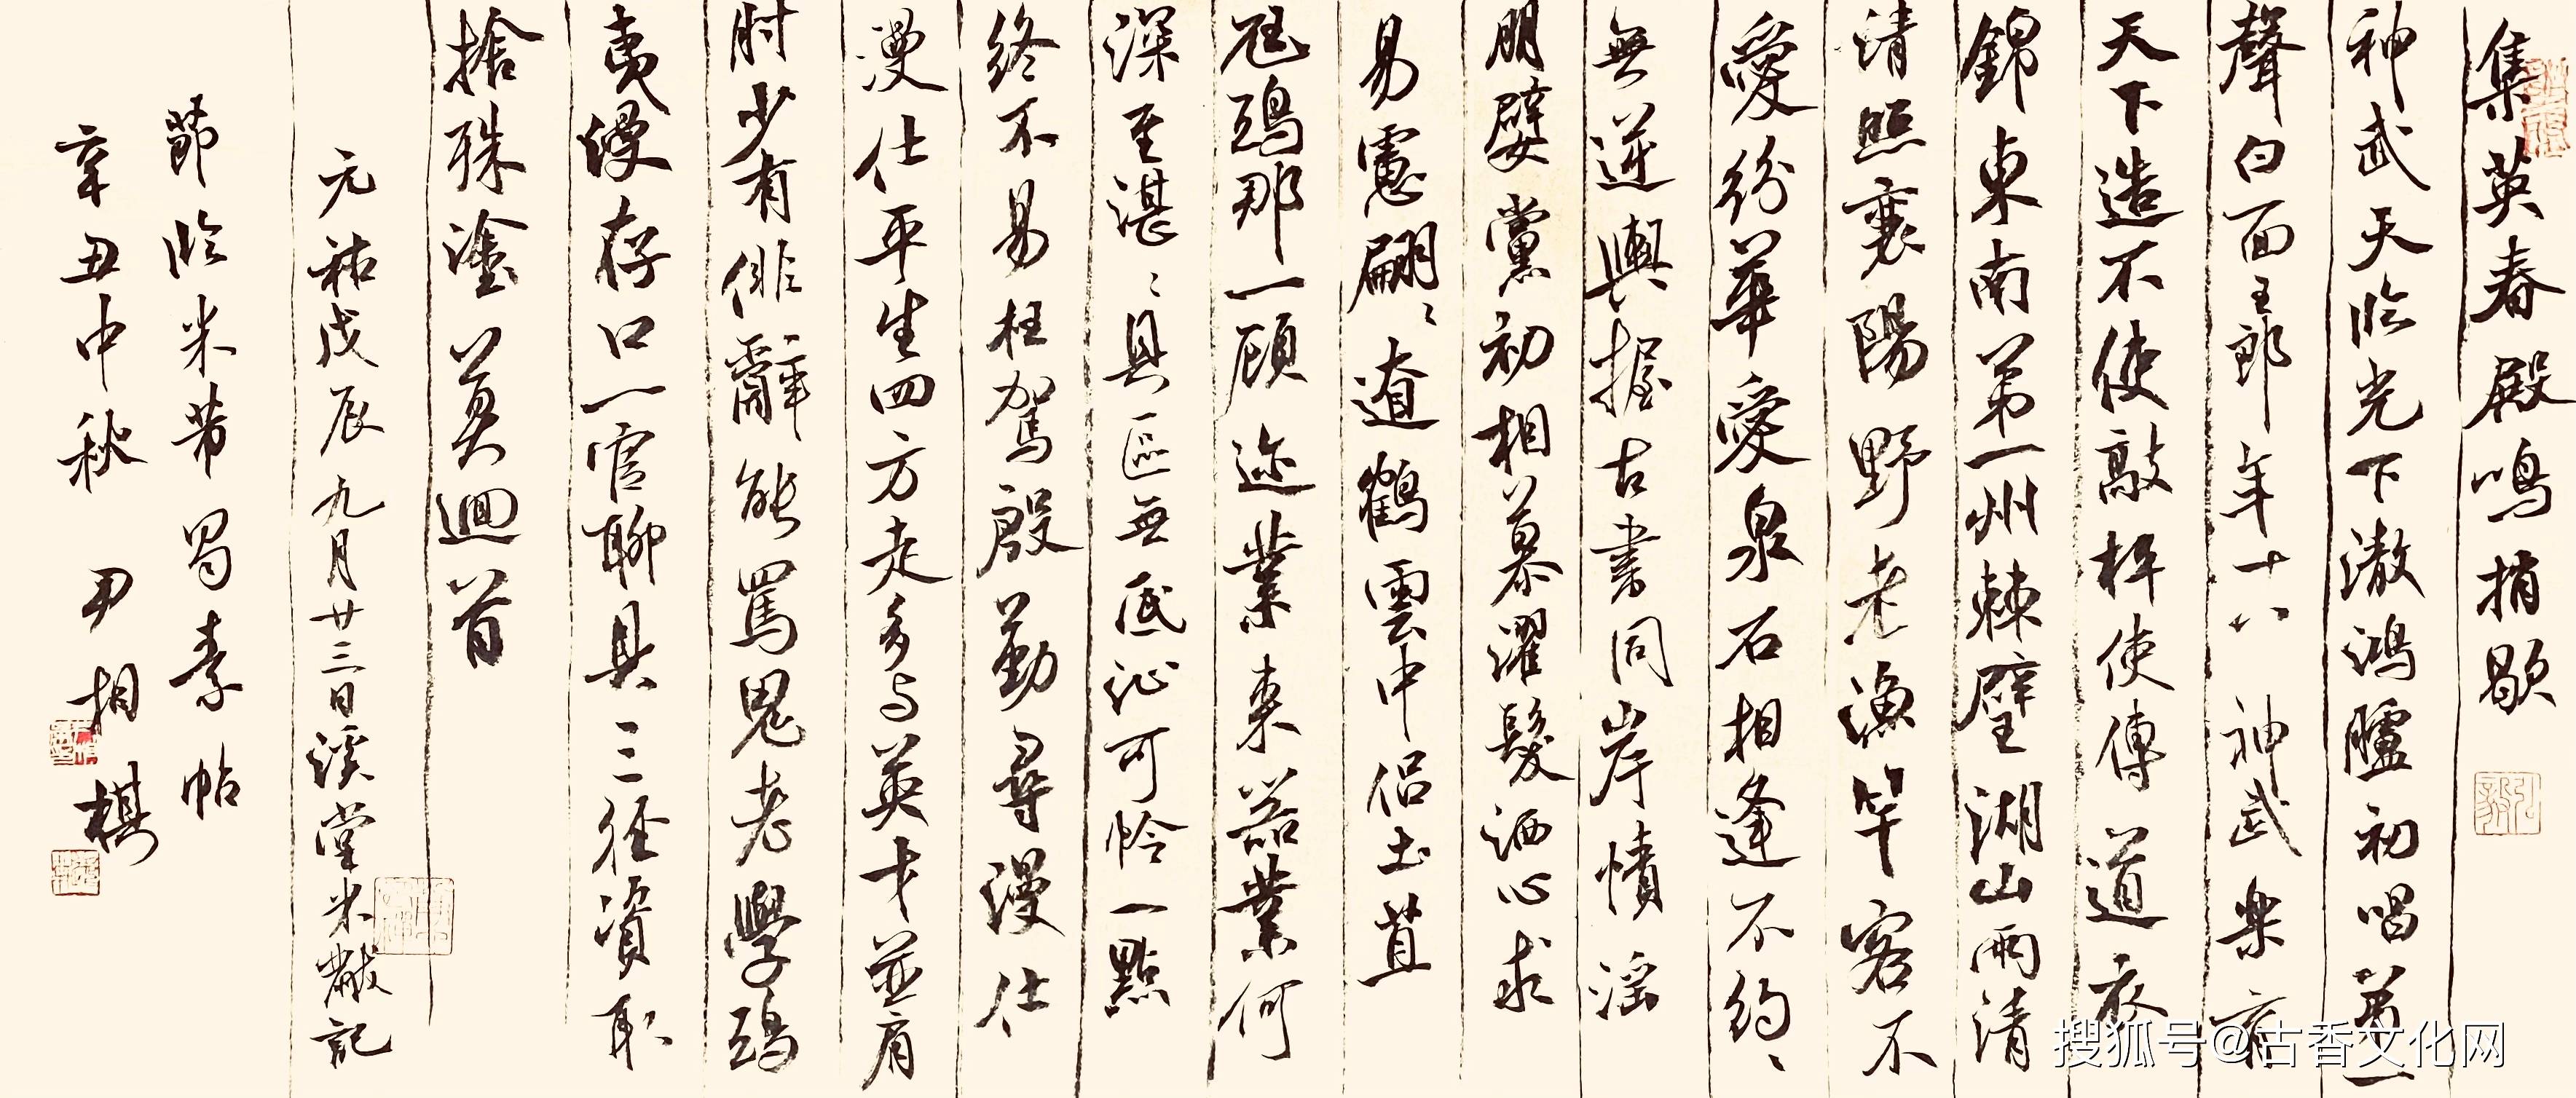 集英春殿鳴捎歇
神武天臨光下澈鴻臚初唱第一
聲白面王郎年十八神武樂育
天下造不使敲枰使傳道衣
錦東南第一州棘璧湖山兩清
清照襄陽野老漁竿客不
愛紛華愛泉石相逢不約、
無逆輿握古書同岸幘淫
朋嬖黨初相慕濯髮洒心求
易慮翩、遼鶴雲中侶土苴
尫鵄那一顧迹業來茲業何
深至湛、具區無底沚可怜一點
終不易枉駕殷勤尋漫仕
漫仕平生四方走多与英才並肩
肘少有俳辭能罵鬼老學鵄
夷漫存口一官聊具三徑資取
捨殊塗莫迴首
元祐戊辰九月廿三日溪堂米黻記
節臨米芾蜀素帖
辛丑中秋 尹相棋
搜狐号@古香文化网